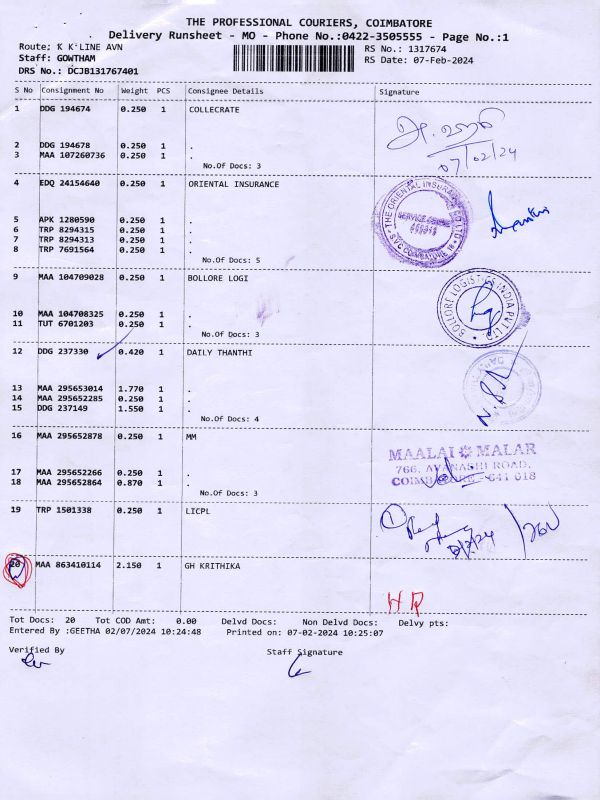 THE PROFESSIONAL COURIERS, COIMBATORE
Delivery Runsheet - MO - Phone No.:0422-3505555 - Page No.:1
Route: K K LINE AVN
RS No.: 1317674
Staff: GOWTHAM
RS Date: 07-Feb-2024
DRS No.: DCJB131767401
S No Consignment No Weight PCS Consignee Details Signature
1 DDG 194674 0.250 1 COLLECRATE
2 DDG 194678 0.250 1 .
3 MAA 107260736 0.250 1 .
07/02/24
No.Of Docs: 3
4 EDQ 24154640 0.250 1 ORIENTAL INSURANCE
THE ORIENTAL INSURANCE CO LTD
SERVICE CENTRE
SVC COIMBATORE 18
5 APK 1280590 0.250 1 .
6 TRP 8294315 0.250 1 .
7 TRP 8294313 0.250 1 .
8 TRP 7691564 0.250 1 .
No.Of Docs: 5
9 MAA 104709028 0.250 1 BOLLORE LOGI
BOLLORE LOGISTICS INDIA PVT LTD.
10 MAA 104708325 0.250 1 .
11 TUT 6701203 0.250 1 .
No.Of Docs: 3
12 DDG 237330 0.420 1 DAILY THANTHI
13 MAA 295653014 1.770 1 .
14 MAA 295652285 0.250 1 .
15 DDG 237149 1.550 1 .
No.Of Docs: 4
16 MAA 295652878 0.250 1 MM
MAALAI MALAR
766, AVANASHI ROAD,
COIMBATORE - 641 018
17 MAA 295652266 0.250 1 .
18 MAA 295652864 0.870 1 .
No.Of Docs: 3
19 TRP 1501338 0.250 1 LICPL
20 MAA 863410114 2.150 1 GH KRITHIKA
Tot Docs: 20 Tot COD Amt: 0.00 Delvd Docs: Non Delvd Docs: Delvy pts:
Entered By :GEETHA 02/07/2024 10:24:48 Printed on: 07-02-2024 10:25:07
Verified By
Staff Signature